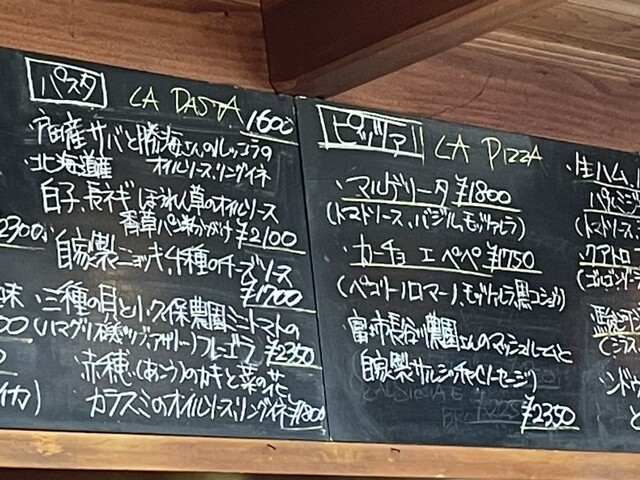 パスタ LA PASTA
産サバと勝海さんのルッコラの ¥1600
オイルソース、リングイネ
・北海道産
白子、長ネギ、ほうれん草のオイルソース
香草パン粉がけ ¥2100
自家製ニョッキ、4種のチーズソース
¥1700
・三種の貝と小久保農園ミニトマトの
(ハマグリ フレゴラ ¥2350
赤穂、(あこう)のカキと菜の花
カラスミのオイルソース、リングイネ ¥1800
2300
味
イカ)
ピッツァ LA PIZZA
・マルゲリータ ¥1800
(トマトソース、バジル、モッツァレラ)
・カーチョ エ ペペ ¥1750
(ペコリーノロマーノ、モッツァレラ、黒コショウ)
・富里市長谷川農園さんのマッシュルームと
自家製サルシッチャ(ソーセージ)
¥2350
・生ハム、
(トマトソース
・クアトロ
(ゴルゴンゾーラ